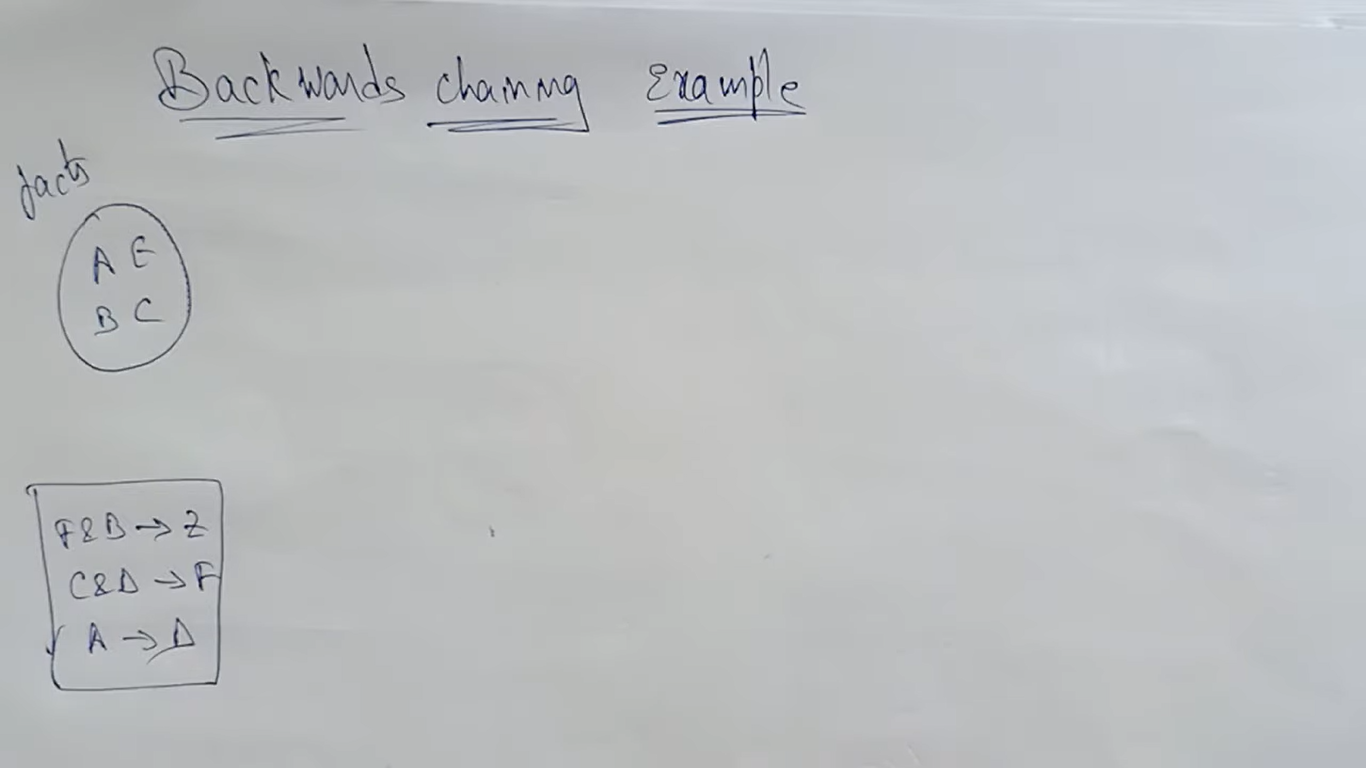 Backwards chaining Example
facts
A E
B C
F&B → Z
C&D → F
A → D